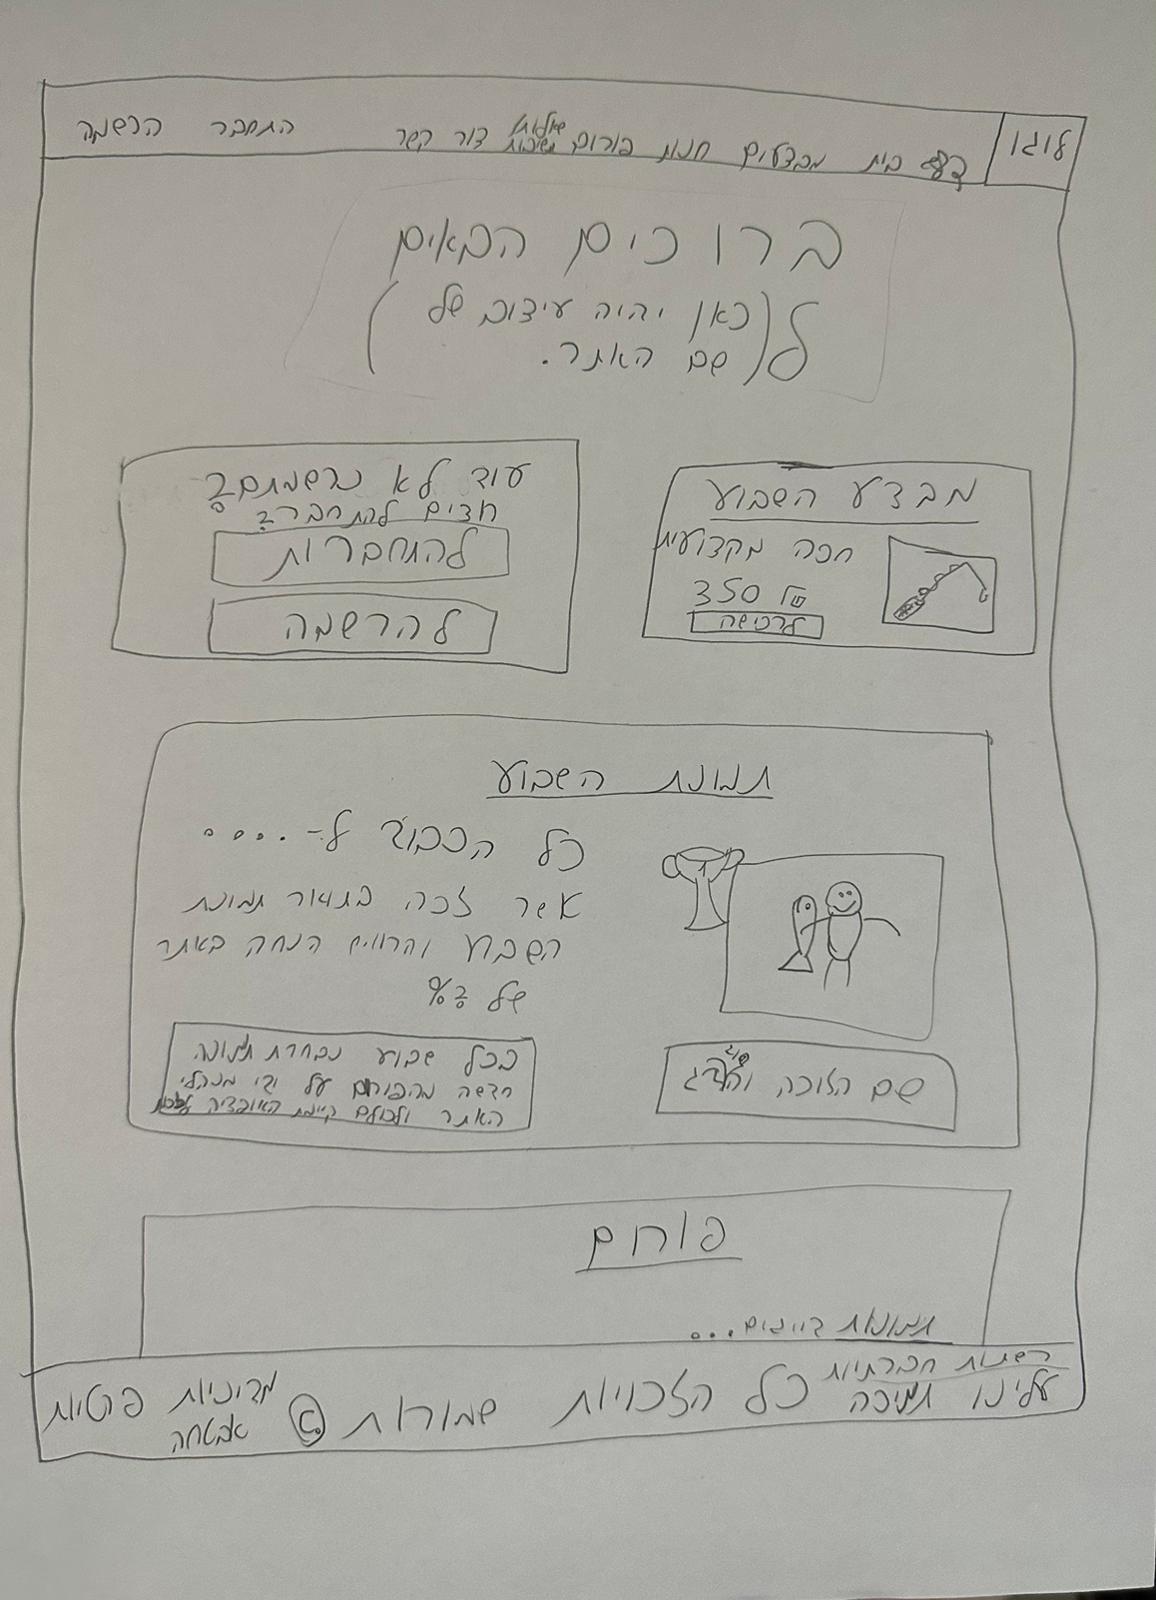 לוגו
דף בית מבצעים חנות פורום שאלות תשובות צור קשר
התחבר הרשמה
ברוכים הבאים
ל(כאן יהיה עיצוב של
שם האתר.)
מבצע השבוע
חכה מקצועית
350 שח
לרכישה
עוד לא נרשמתם?
רוצים להתחבר?
להתחברות
להרשמה
תמונת השבוע
כל הכבוד ל-....
אשר זכה בתואר תמונת
השבוע והרוויח הנחה באתר
של ?%
שם הזוכה וסוג הדג
בכל שבוע נבחרת תמונה
חדשה מהפורום על ידי מנהלי
האתר ולכולם קיימת האופציה לזכות
פורום
תמונות דייגים...
רשתות חברתיות
עלינו תמיכה כל הזכויות שמורות © מדיניות פרטיות
אבטחה